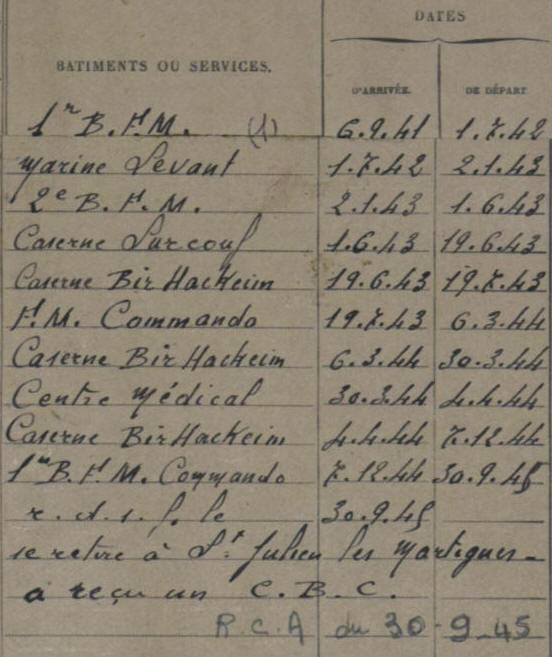 DATES
BATIMENTS OU SERVICES.
D'ARRIVÉE. DE DÉPART.
1er B.F.M. (1) 6.9.41 1.7.42
Marine Levant 1.7.42 2.1.43
2e B.F.M. 2.1.43 1.6.43
Caserne Surcouf 1.6.43 19.6.43
Caserne Bir Hackeim 19.6.43 19.7.43
F.M. Commando 19.7.43 6.3.44
Caserne Bir Hackeim 6.3.44 30.3.44
Centre Médical 30.3.44 4.4.44
Caserne Bir Hackeim 4.4.44 7.12.44
1er B.F.M. Commando 7.12.44 30.9.45
r.d.s.f. le 30.9.45
se retire à St Julien les Martigues -
a reçu un C.B.C.
R.C.A du 30-9-45